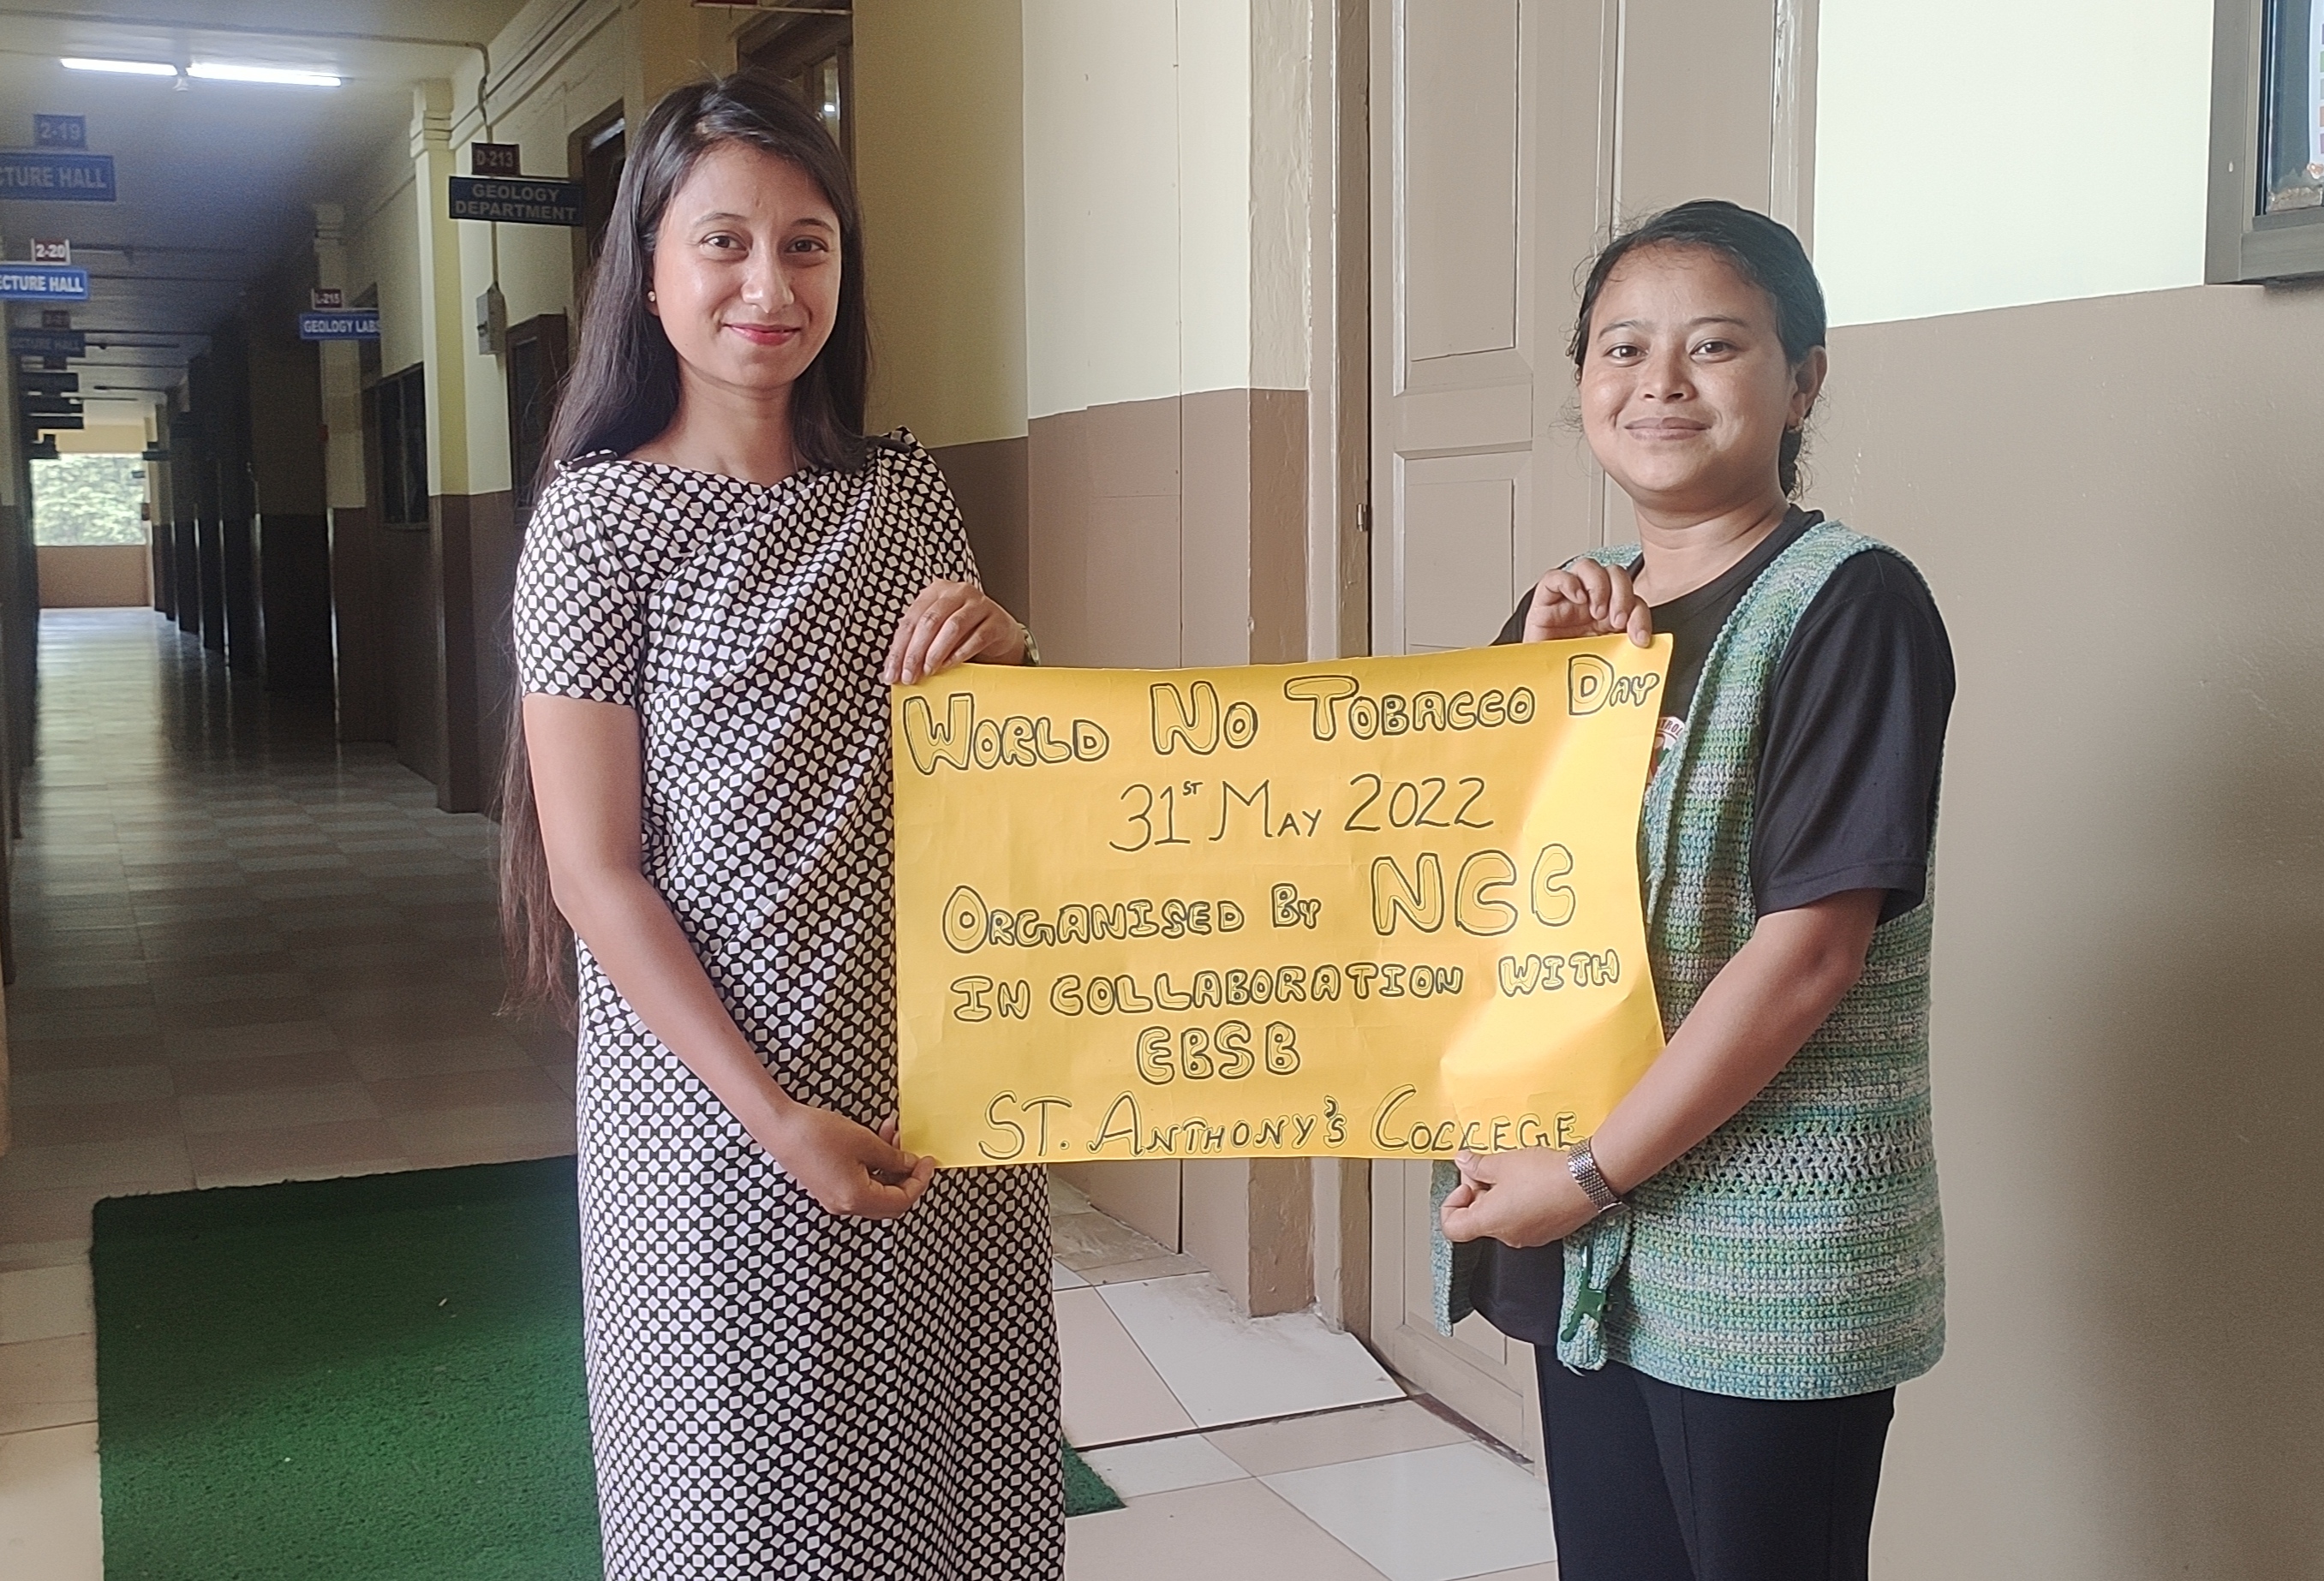 2-19
CTURE HALL
2-20
ECTURE HALL
ECTURE HALL
D-213
GEOLOGY
DEPARTMENT
L-215
GEOLOGY LABS
WORLD NO TOBACCO DAY
31ST MAY 2022
ORGANISED BY NCC
IN COLLABORATION WITH
EBSB
ST. ANTHONY'S COLLEGE